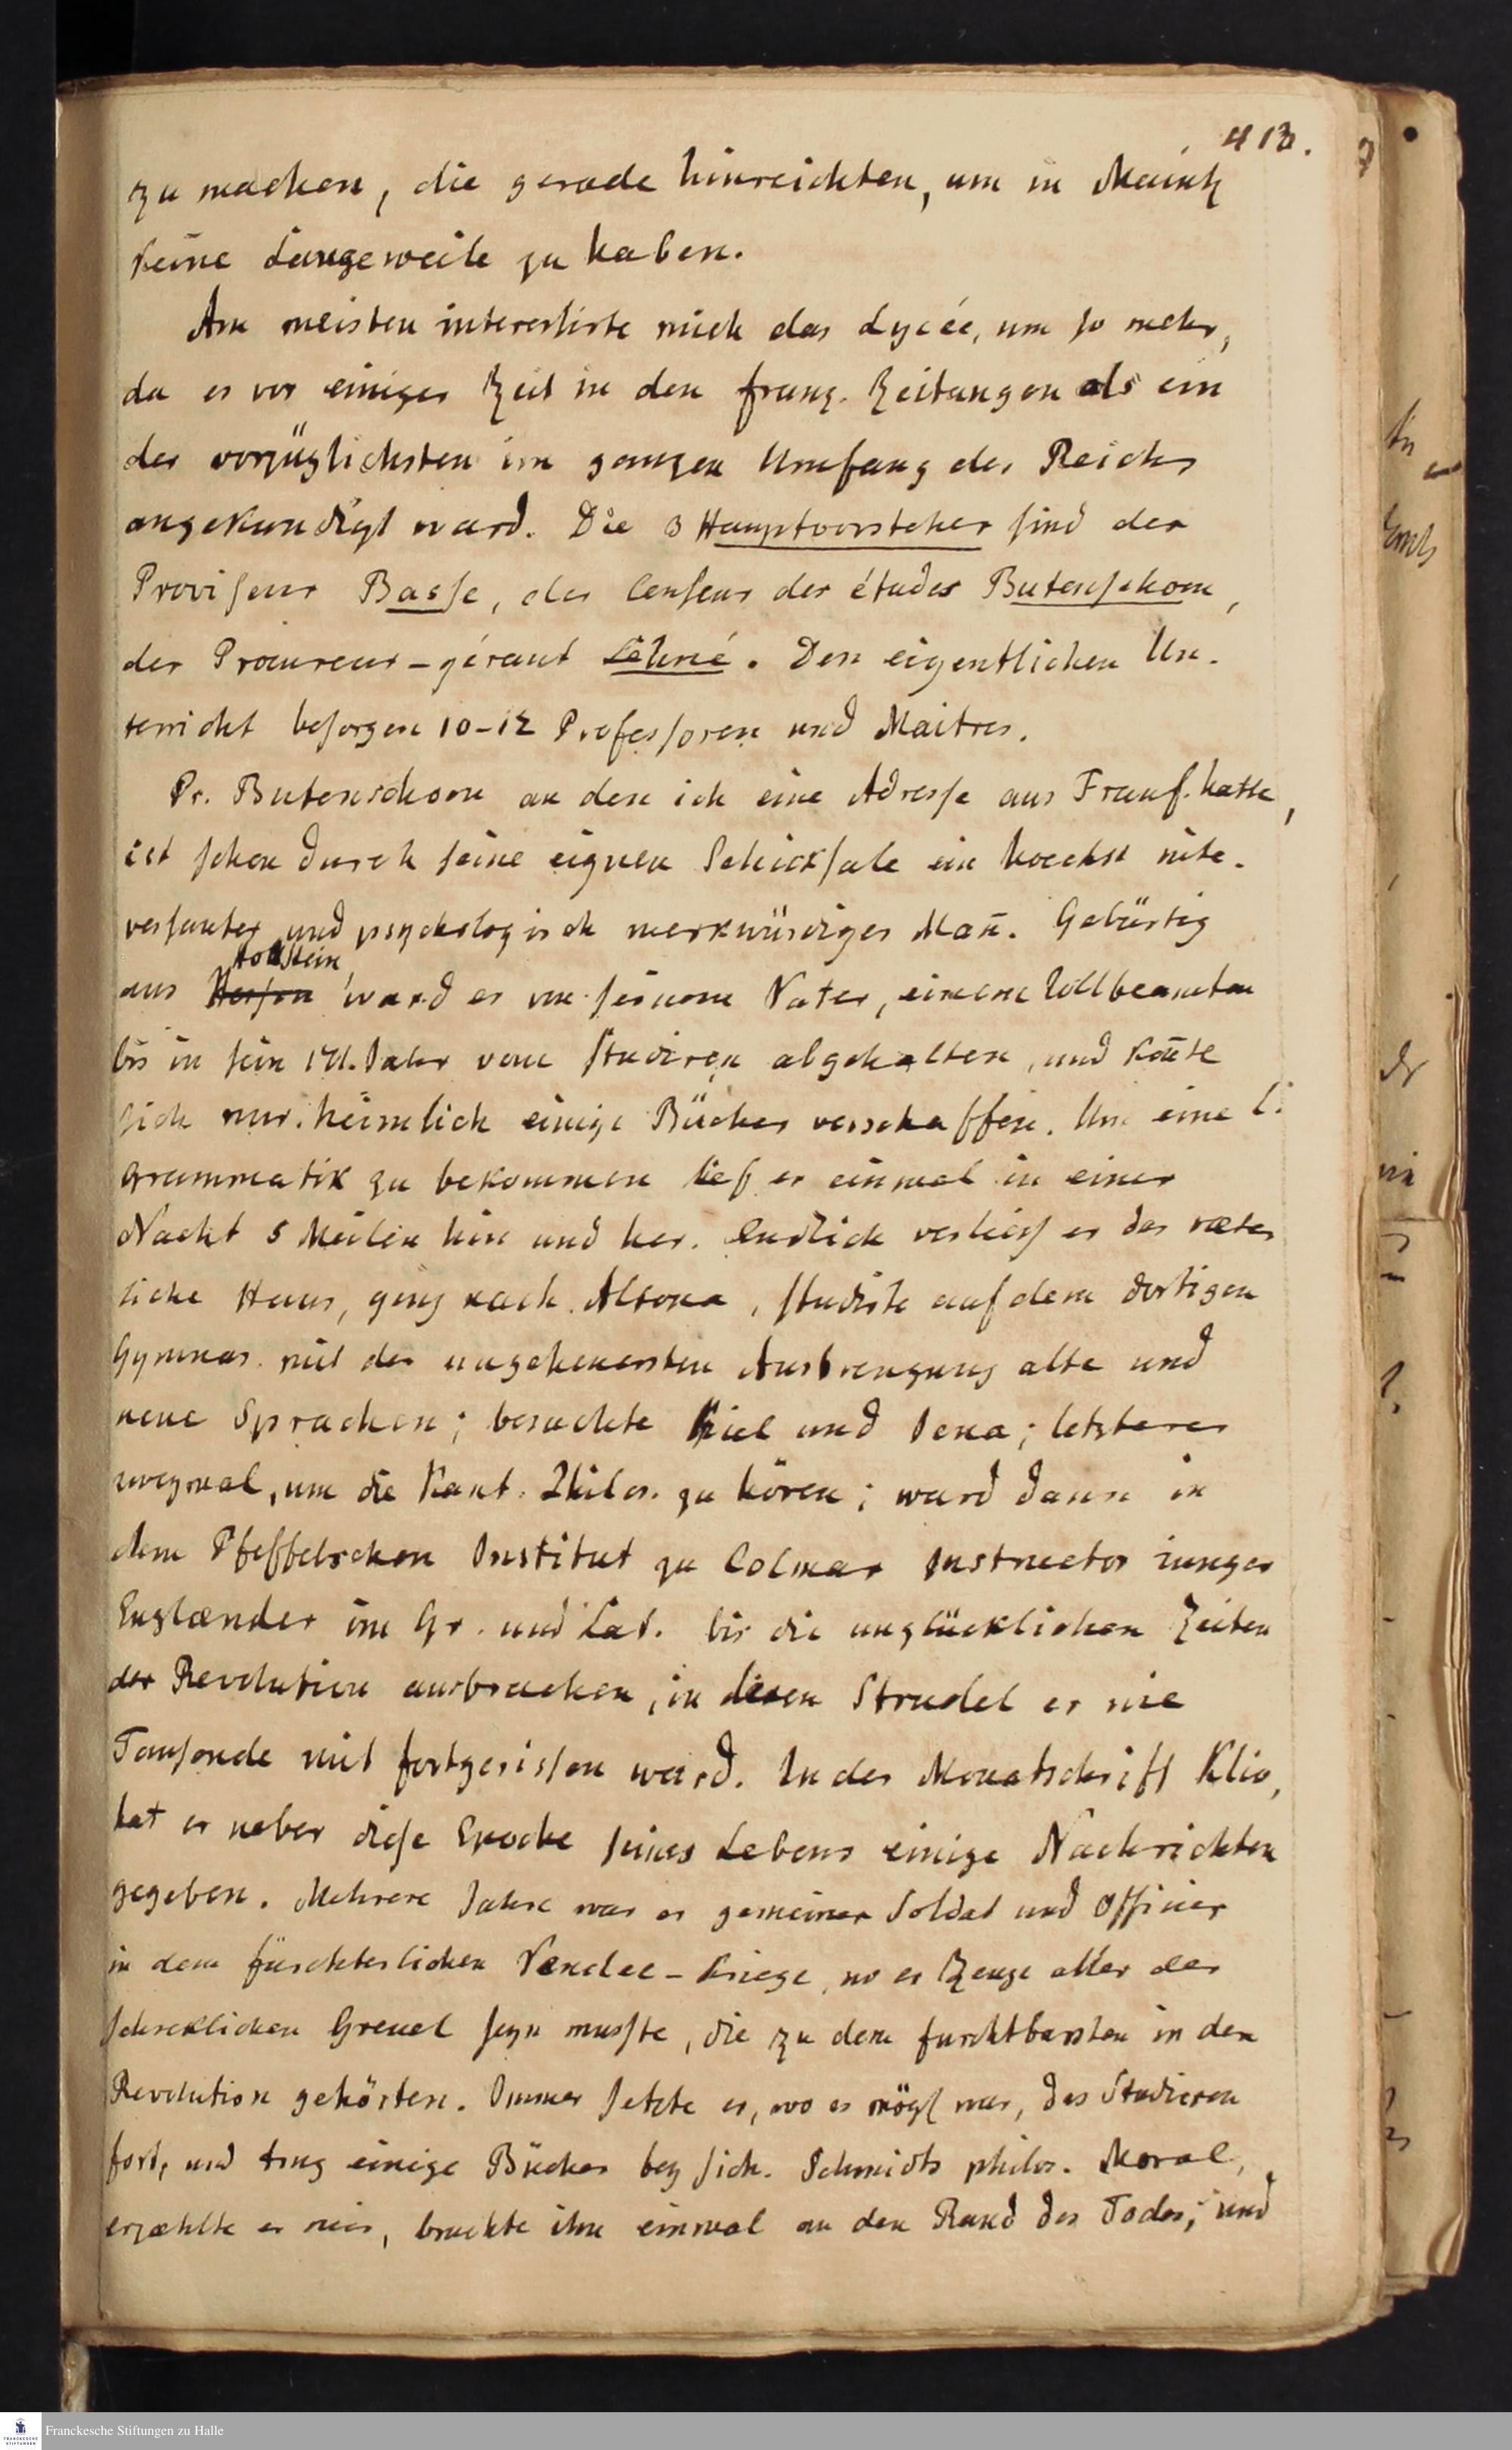 413.
zu machen, die gerade hinreichten, um in Maintz
keine Langeweile zu haben.
Am meisten interessirte mich das Lycée, um so mehr,
da es vor einiger Zeit in den franz. Zeitungen als ein
der vorzüglichsten im ganzen Umfang des Reichs
angekundigt ward. Die 3 Hauptvorsteher sind der
Proviseur Basse, der Censeur des études Butenschoen,
der Procureur-gérant Lehné. Den eigentlichen Un-
terricht besorgen 10-12 Professoren und Maitres.
Pr. Butenschoen an den ich eine Adresse aus Frankf. hatte,
ist schon durch seine eignen Schicksale ein hoechst inte-
ressanter und psychologisch merkwürdiger Man̄. Gebürtig
Holstein
aus Hessen ward er von seinem Vater, einem Zollbeamten
bis in sein 17. Jahr vom Studiren abgehalten, und kon̄te
sich nur heimlich einige Bücher verschaffen. Um eine l.
Grammatik zu bekommen lief er einmal in einer
Nacht 5 Meilen hin und her. Endlich verliess er das væter
liche Haus, ging nach Altona, studirte auf dem dortigen
Gymnas. mit der ungeheuersten Anstrengung alte und
neue Sprachen; besuchte Kiel und Jena; letzteres
zweymal, um die Kant. Philos. zu hören; ward dann in
dem Pfeffelschen Institut zu Colmar Instructor iunger
Englænder im Gr. und Lat. bis die unglücklichen Zeiten
der Revolution ausbrachen, in deren Strudel er wie
Tausende mit fortgerissen ward. In der Monatschrift Klio,
hat er ueber diese Epoche seines Lebens einige Nachrichten
gegeben. Mehrere Jahre war er gemeiner Soldat und Officier
in dem fürchterlichen Vendee-Kriege, wo er Zeuge aller der
schrecklichen Greuel seyn musste, die zu dem furchtbarsten in der
Revolution gehörten. Immer setzte er, wo es mögl war, das Studieren
fort, und trug einige Bücher bey sich. Schmidts philos. Moral,
erzæhlte er mir, brachte ihn einmal an den Rand des Todes; und
Franckesche Stiftungen zu Halle